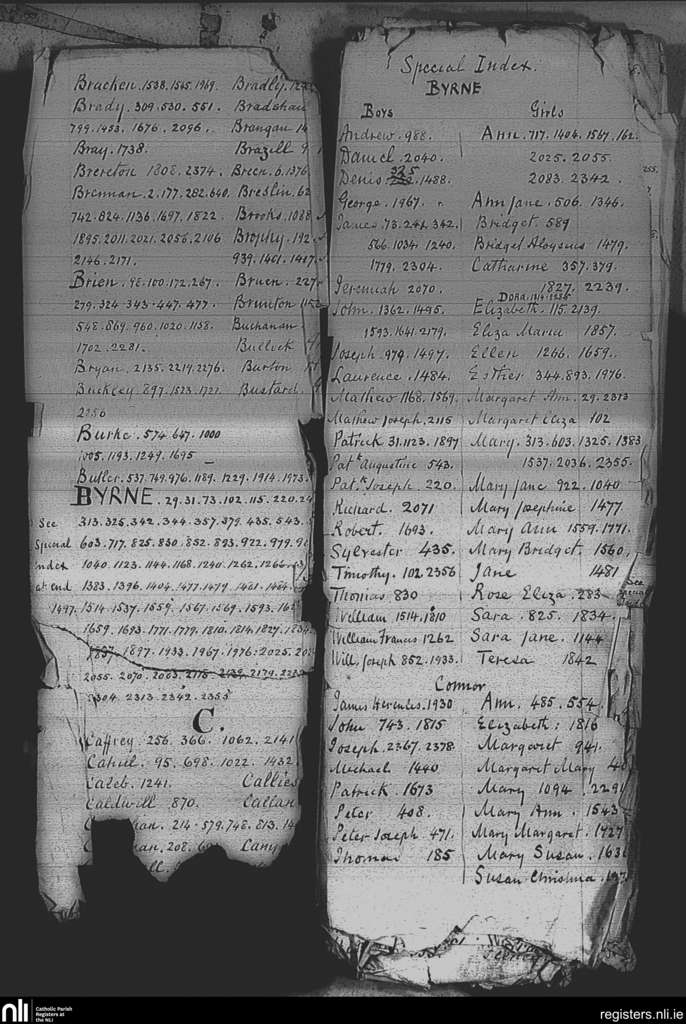 Bracken. 1538. 1565. 1969. Bradly.
Brady. 309. 530. 551. Bradshaw
799. 1453. 1676. 2096. Brangan
Bray. 1738. Brazill
Brereton 1808. 2374. Breen. 6. 1376
Brennan. 2. 177. 282. 640. Breslin. 62
742. 824. 1136. 1697. 1822. Brooks. 1088
1895. 2011. 2021. 2056. 2106 Brophy. 192
2146. 2171. 939. 1401. 1417
Brien. 48. 100. 172. 267. Bruen. 227
279. 324. 343. 447. 477. Brunton 1152
548. 869. 960. 1020. 1138. Buchanan
1702. 2281. Bullock
Bryan. 2135. 2219. 2276. Burton
Buckley 897. 1523. 1721. Bustard
2156
Burke. 574. 647. 1000
1005. 1193. 1249. 1695
Butler. 537. 749. 976. 1189. 1229. 1914. 1973.
BYRNE. 29. 31. 73. 102. 115. 220.
See 313. 325. 342. 344. 357. 379. 435. 543.
Special 603. 717. 825. 830. 852. 893. 922. 979.
index 1040. 1123. 1144. 1168. 1240. 1262. 1266.
at end 1383. 1396. 1404. 1477. 1479. 1481. 1484.
1497. 1514. 1537. 1559. 1567. 1569. 1593.
1659. 1693. 1771. 1779. 1810. 1814. 1827. 1834
1857. 1897. 1933. 1967. 1976. 2025.
2055. 2070. 2083. 2115. 2139. 2179.
2304. 2313. 2342. 2355
C.
Caffrey. 256. 366. 1062. 2141
Cahill. 95. 698. 1022. 1432
Caleb. 1241. Callies
Caldwill 870. Callan
214. 579. 748. 813.
208.
Special Index.
BYRNE
Boys Girls
Andrew. 988. Ann. 717. 1404. 1567.
Daniel. 2040. 2025. 2055.
Denis 325. 1488. 2083. 2342.
George. 1967. Ann Jane. 506. 1346.
James. 73. 244. 342. Bridget. 589
566. 1034. 1240. Bridget Aloysius 1479.
1779. 2304. Catharine 357. 379.
Jeremiah 2070. 1827. 2239.
Dora.
John. 1362. 1495. Elizabeth. 115. 2139.
1593. 1641. 2179. Eliza Maria 1857.
Joseph. 979. 1497. Ellen 1266. 1659.
Laurence. 1484. Esther 344. 893. 1976.
Mathew 1168. 1569. Margaret Ann. 29. 2313
Mathew Joseph. 2115 Margaret Eliza 102
Patrick 31. 1123. 1897 Mary. 313. 603. 1325. 1383
Patk Augustine 543. 1537. 2036. 2355.
Patk Joseph. 220. Mary Jane 922. 1040
Richard. 2071 Mary Josephine 1477
Robert. 1693. Mary Ann 1559. 1771.
Sylvester 435. Mary Bridget. 1560.
Timothy. 102. 2356 Jane 1481
Thomas 830 Rose Eliza. 283
William 1514. 1810 Sara. 825. 1834.
William Francis 1262 Sara Jane. 1144
Will. Joseph 852. 1933. Teresa 1842
Connor
James Hercules. 1930 Ann. 485. 554.
John 743. 1815 Elizabeth: 1816
Joseph. 2367. 2378 Margaret 941.
Michael 1440 Margaret Mary
Patrick 1673 Mary 1094. 2291
Peter 408. Mary Ann. 1543
Peter Joseph 471. Mary Margaret. 1727
Thomas 185 Mary Susan. 1631
Susan Christina.
255.
See
nli
Catholic Parish
Registers at
the NLI
registers.nli.ie